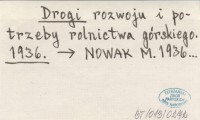 Drogi rozwoju i po-
trzeby rolnictwa górskiego.
1936. → NOWAK M. 1936...